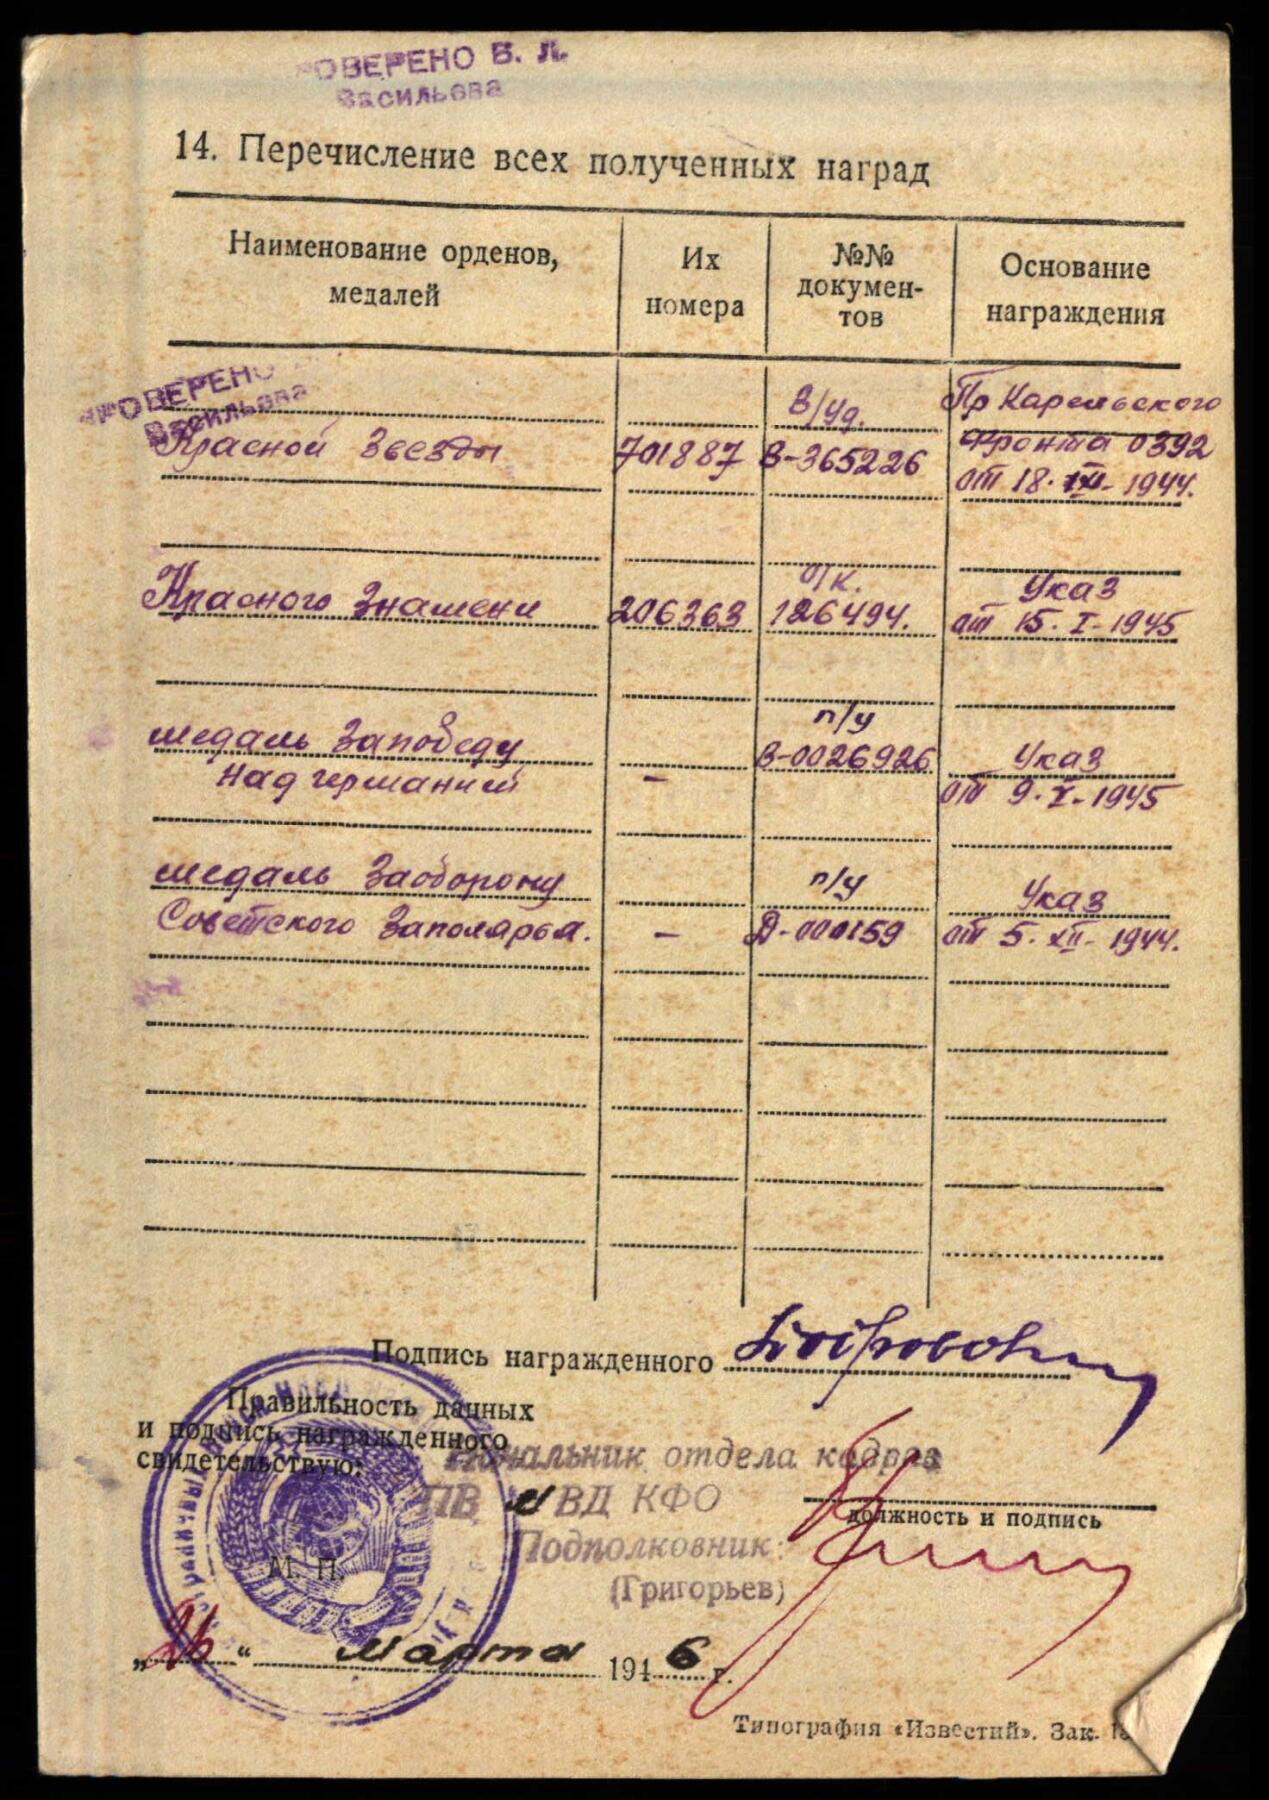 ОВЕРЕНО В. Л.
Васильева
14. Перечисление всех полученных наград
Наименование орденов,
медалей
Их
номера
№№
докумен-
тов
Основание
награждения
РОВЕРЕНО
Васильева
Красной Звезды
701887
В/уд.
В-365226
Пр Карельского
фронта 0392
от 18. 1944.
Красного Знамени
206363
о/к.
126494.
Указ
от 15. I-1945
медаль Запобеду
над германией
-
п/у
В-0026926
Указ
от 9. V-1945
медаль Заоборону
Советского Заполярья.
-
п/у
Д-000159
Указ
от 5. XII-1944.
Подпись награжденного
Правильность данных
и подпись награжденного
свидетельствую:
Начальник отдела кадров
ПВ МВД КФО
должность и подпись
Подполковник:
(Григорьев)
М. П.
„26“ марта 1946 г.
Типография «Известий». Зак.